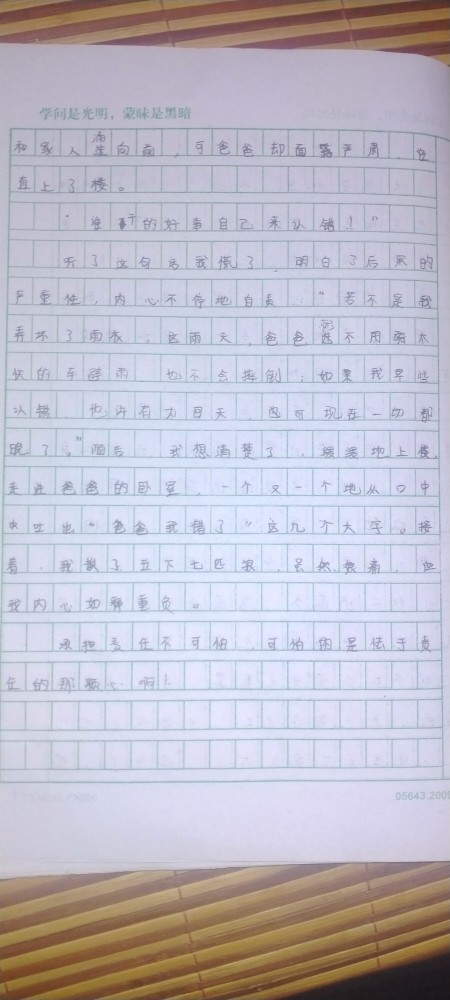 学问是光明，蒙昧是黑暗
和家人向前，可爸爸却面露严肃，
直上了楼。
“谁干的好事自己来认错！”
听了这句话我慌了，明白了后果的
严重性，内心不停地自责：“若不是我
弄坏了雨衣，这雨天，爸爸不用骑太
快的车避雨，也不会摔倒；如果我早些
认错，也许有力回天，可现在一切都
晚了。”随后，我想清楚了，缓缓地上楼，
走进爸爸的卧室，一个又一个地从口中
吐出“爸爸我错了”这几个大字。接
着，我散了五下七匹狼，虽然很痛，但
我内心如释重负。
承担责任不可怕，可怕的是怯于责
任的那颗心啊！
05643.200